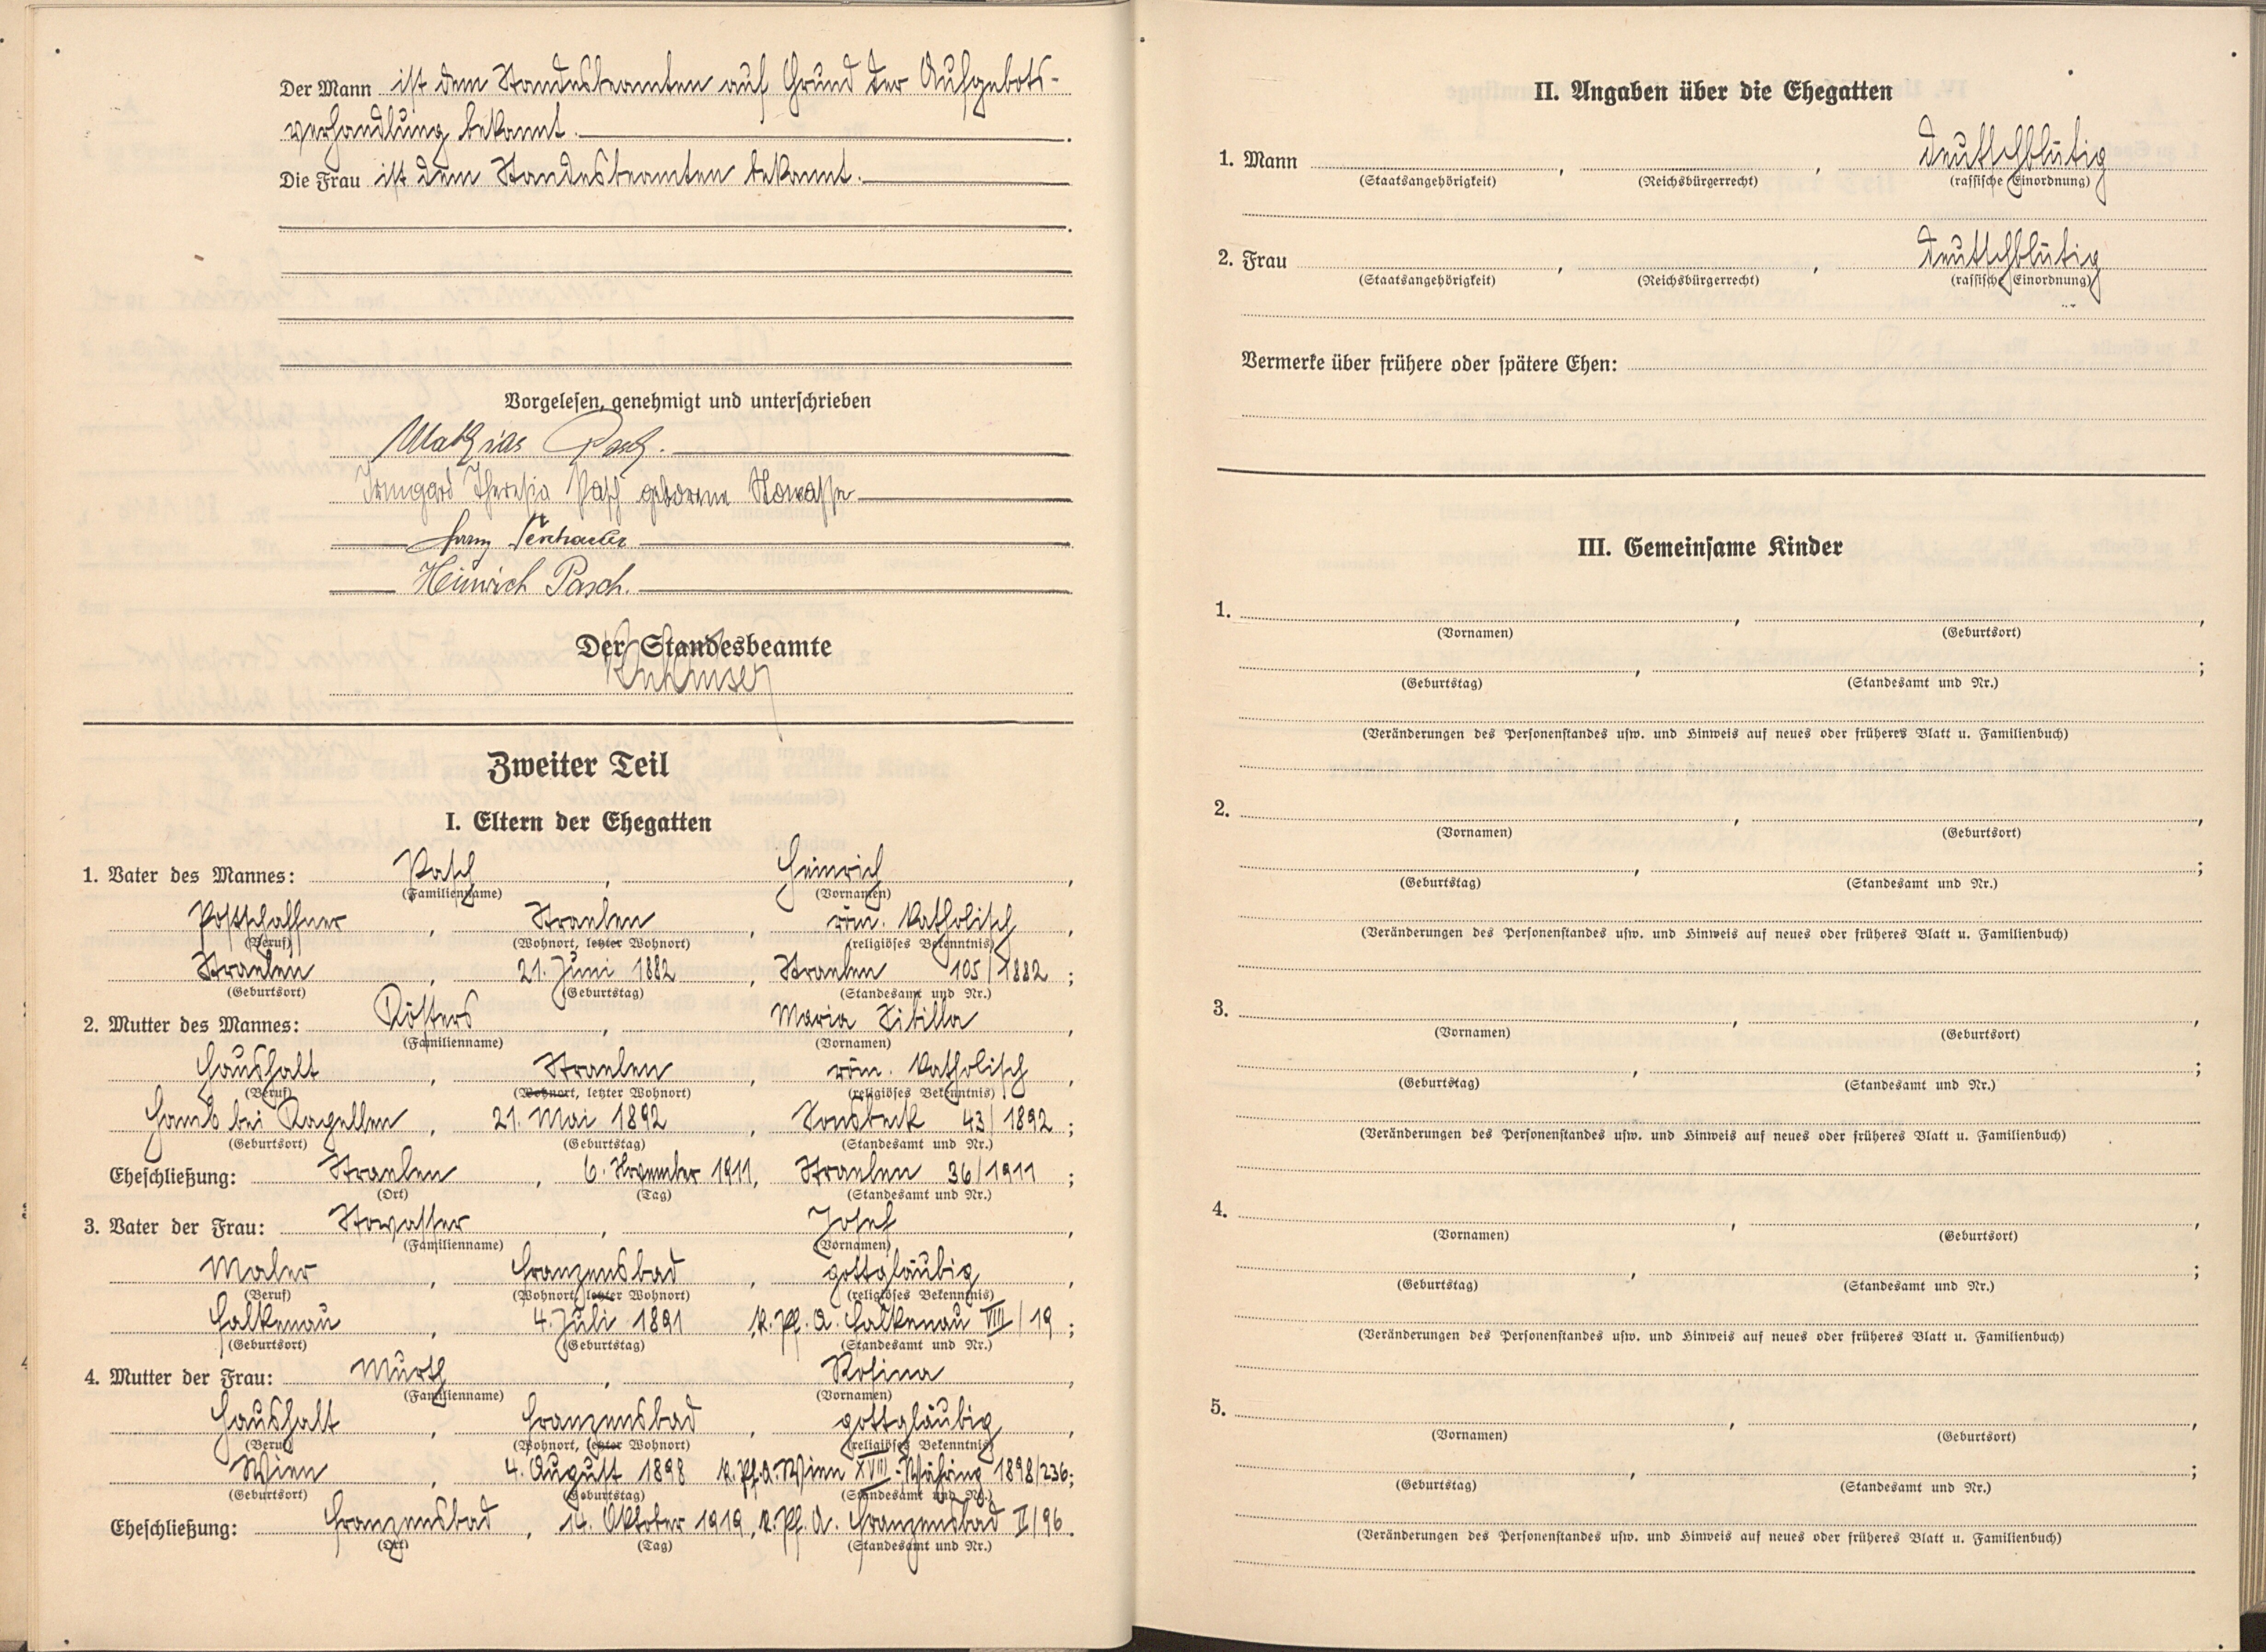 Der Mann ist dem Standesbeamten auf Grund der Aufgebots-
verhandlung bekannt.
Die Frau ist dem Standesbeamten bekannt.
Vorgelesen, genehmigt und unterschrieben
Mathias Pasch.
Irmgard Theresia Pasch geborene Stowasser
Franz
Heinrich Pasch.
Der Standesbeamte
Zweiter Teil
I. Eltern der Ehegatten
1. Vater des Mannes: Pasch, Heinrich,
(Familienname) (Vornamen)
Postschaffner, Straelen, röm. katholisch,
(Beruf) (Wohnort, letzter Wohnort) (religiöses Bekenntnis)
Straelen, 21. Juni 1882, Straelen 105/1882;
(Geburtsort) (Geburtstag) (Standesamt und Nr.)
2. Mutter des Mannes: Rösters, Maria Sibilla,
(Familienname) (Vornamen)
Haushalt, Straelen, röm. katholisch,
(Beruf) (Wohnort, letzter Wohnort) (religiöses Bekenntnis)
Hamb bei Kapellen, 21. Mai 1892, Sonsbeck 43/1892;
(Geburtsort) (Geburtstag) (Standesamt und Nr.)
Eheschließung: Straelen, 6. November 1911, Straelen 36/1911;
(Ort) (Tag) (Standesamt und Nr.)
3. Vater der Frau: Stowasser, Josef,
(Familienname) (Vornamen)
Maler, Franzensbad, gottgläubig,
(Beruf) (Wohnort, letzter Wohnort) (religiöses Bekenntnis)
Falkenau, 4. Juli 1891, k. Pf. A. Falkenau VIII/19;
(Geburtsort) (Geburtstag) (Standesamt und Nr.)
4. Mutter der Frau: Murth, Rosina,
(Familienname) (Vornamen)
Haushalt, Franzensbad, gottgläubig,
(Beruf) (Wohnort, letzter Wohnort) (religiöses Bekenntnis)
Wien, 4. August 1898 k. Pf. A. Wien XVIII. Währing 1898/236;
(Geburtsort) (Geburtstag) (Standesamt und Nr.)
Eheschließung: Franzensbad, 14. Oktober 1919, k. Pf. A. Franzensbad II/96
(Ort) (Tag) (Standesamt und Nr.)
II. Angaben über die Ehegatten
1. Mann , , deutschblütig
(Staatsangehörigkeit) (Reichsbürgerrecht) (rassische Einordnung)
2. Frau , , deutschblütig
(Staatsangehörigkeit) (Reichsbürgerrecht) (rassische Einordnung)
Vermerke über frühere oder spätere Ehen:
III. Gemeinsame Kinder
1. , ,
(Vornamen) (Geburtsort)
, ;
(Geburtstag) (Standesamt und Nr.)
(Veränderungen des Personenstandes usw. und Hinweis auf neues oder früheres Blatt u. Familienbuch)
2. , ,
(Vornamen) (Geburtsort)
, ;
(Geburtstag) (Standesamt und Nr.)
(Veränderungen des Personenstandes usw. und Hinweis auf neues oder früheres Blatt u. Familienbuch)
3. , ,
(Vornamen) (Geburtsort)
, ;
(Geburtstag) (Standesamt und Nr.)
(Veränderungen des Personenstandes usw. und Hinweis auf neues oder früheres Blatt u. Familienbuch)
4. , ,
(Vornamen) (Geburtsort)
, ;
(Geburtstag) (Standesamt und Nr.)
(Veränderungen des Personenstandes usw. und Hinweis auf neues oder früheres Blatt u. Familienbuch)
5. , ,
(Vornamen) (Geburtsort)
, ;
(Geburtstag) (Standesamt und Nr.)
(Veränderungen des Personenstandes usw. und Hinweis auf neues oder früheres Blatt u. Familienbuch)